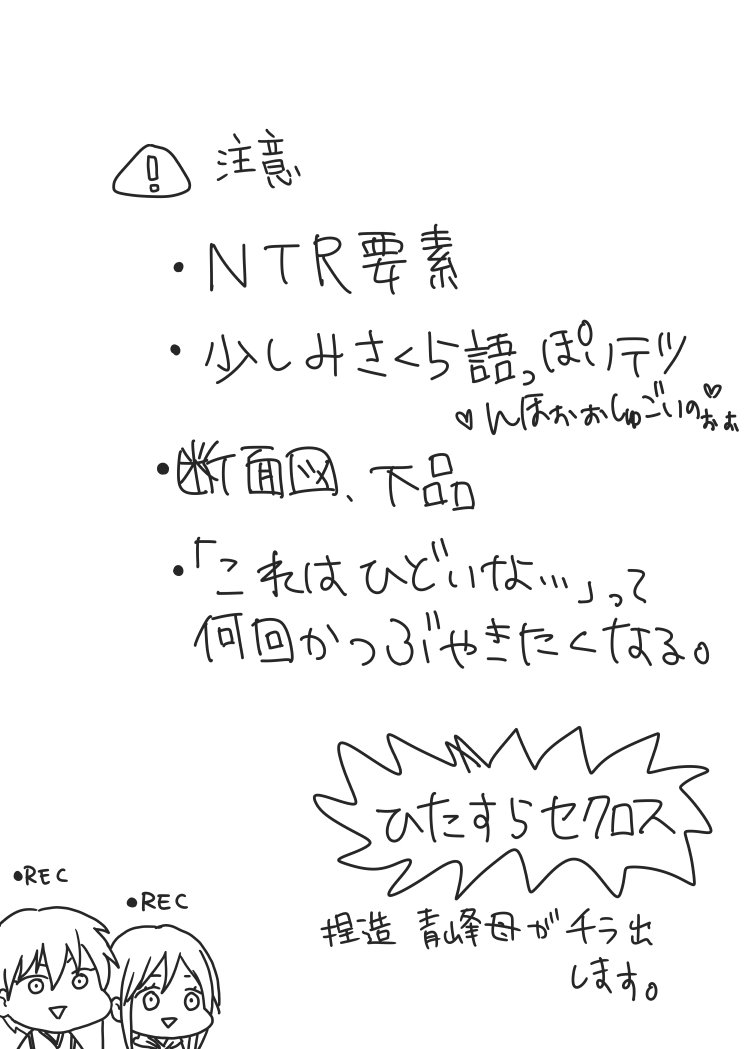 注意
・NTR要素
・少しみさくら語っぽいテツ
♡んほぉぉしゅごいのぉぉ♡
・断面図、下品
・「これはひどいな…」って
何回かつぶやきたくなる。
ひたすらセクロス
捏造 青峰母がチラ出
します。
•REC
•REC